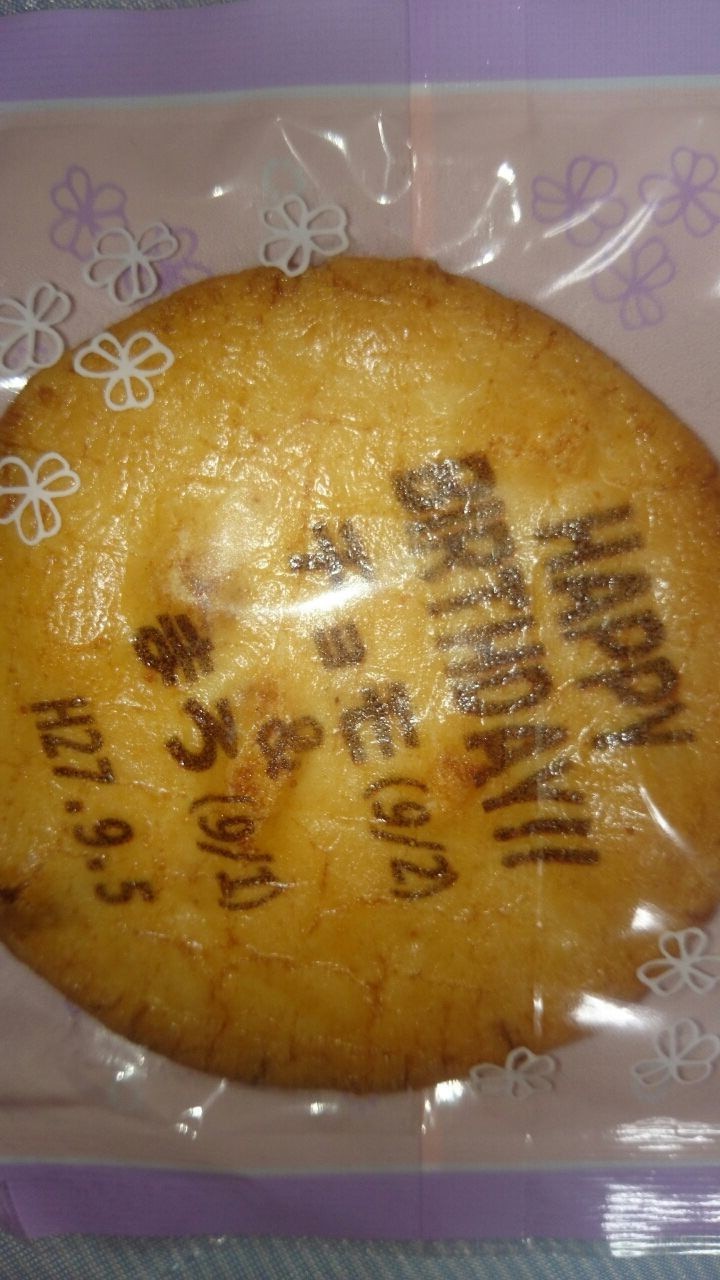 HAPPY
BIRTHDAY!!
チョモ(9/2)
&
まろ(9/1)
H27.9.5